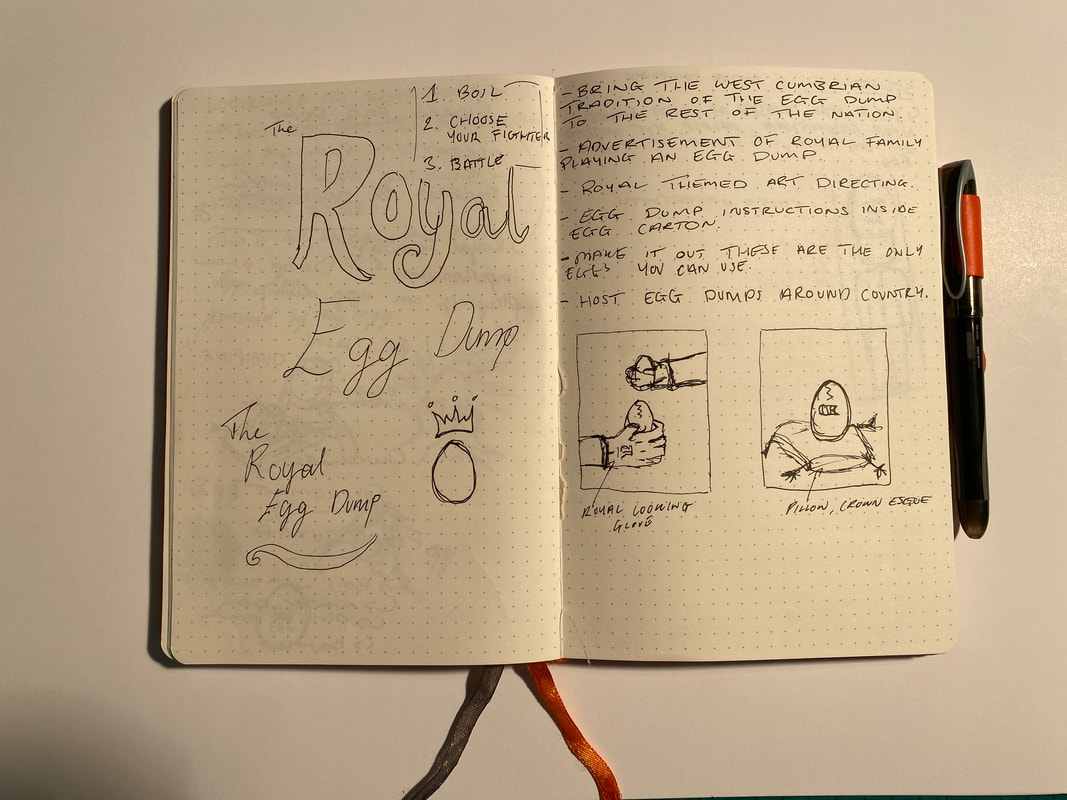 1. BOIL
2. CHOOSE
YOUR FIGHTER
3. BATTLE
The
Royal
Egg Dump
The
Royal
Egg Dump
- BRING THE WEST CUMBRIAN
TRADITION OF THE EGG DUMP
TO THE REST OF THE NATION.
- ADVERTISEMENT OF ROYAL FAMILY
PLAYING AN EGG DUMP.
- ROYAL THEMED ART DIRECTING.
- EGG DUMP INSTRUCTIONS INSIDE
EGG CARTON.
- MAKE IT OUT THESE ARE THE ONLY
EGGS YOU CAN USE.
- HOST EGG DUMPS AROUND COUNTRY.
ROYAL LOOKING
GLOVE
PILLOW, CROWN ESQUE